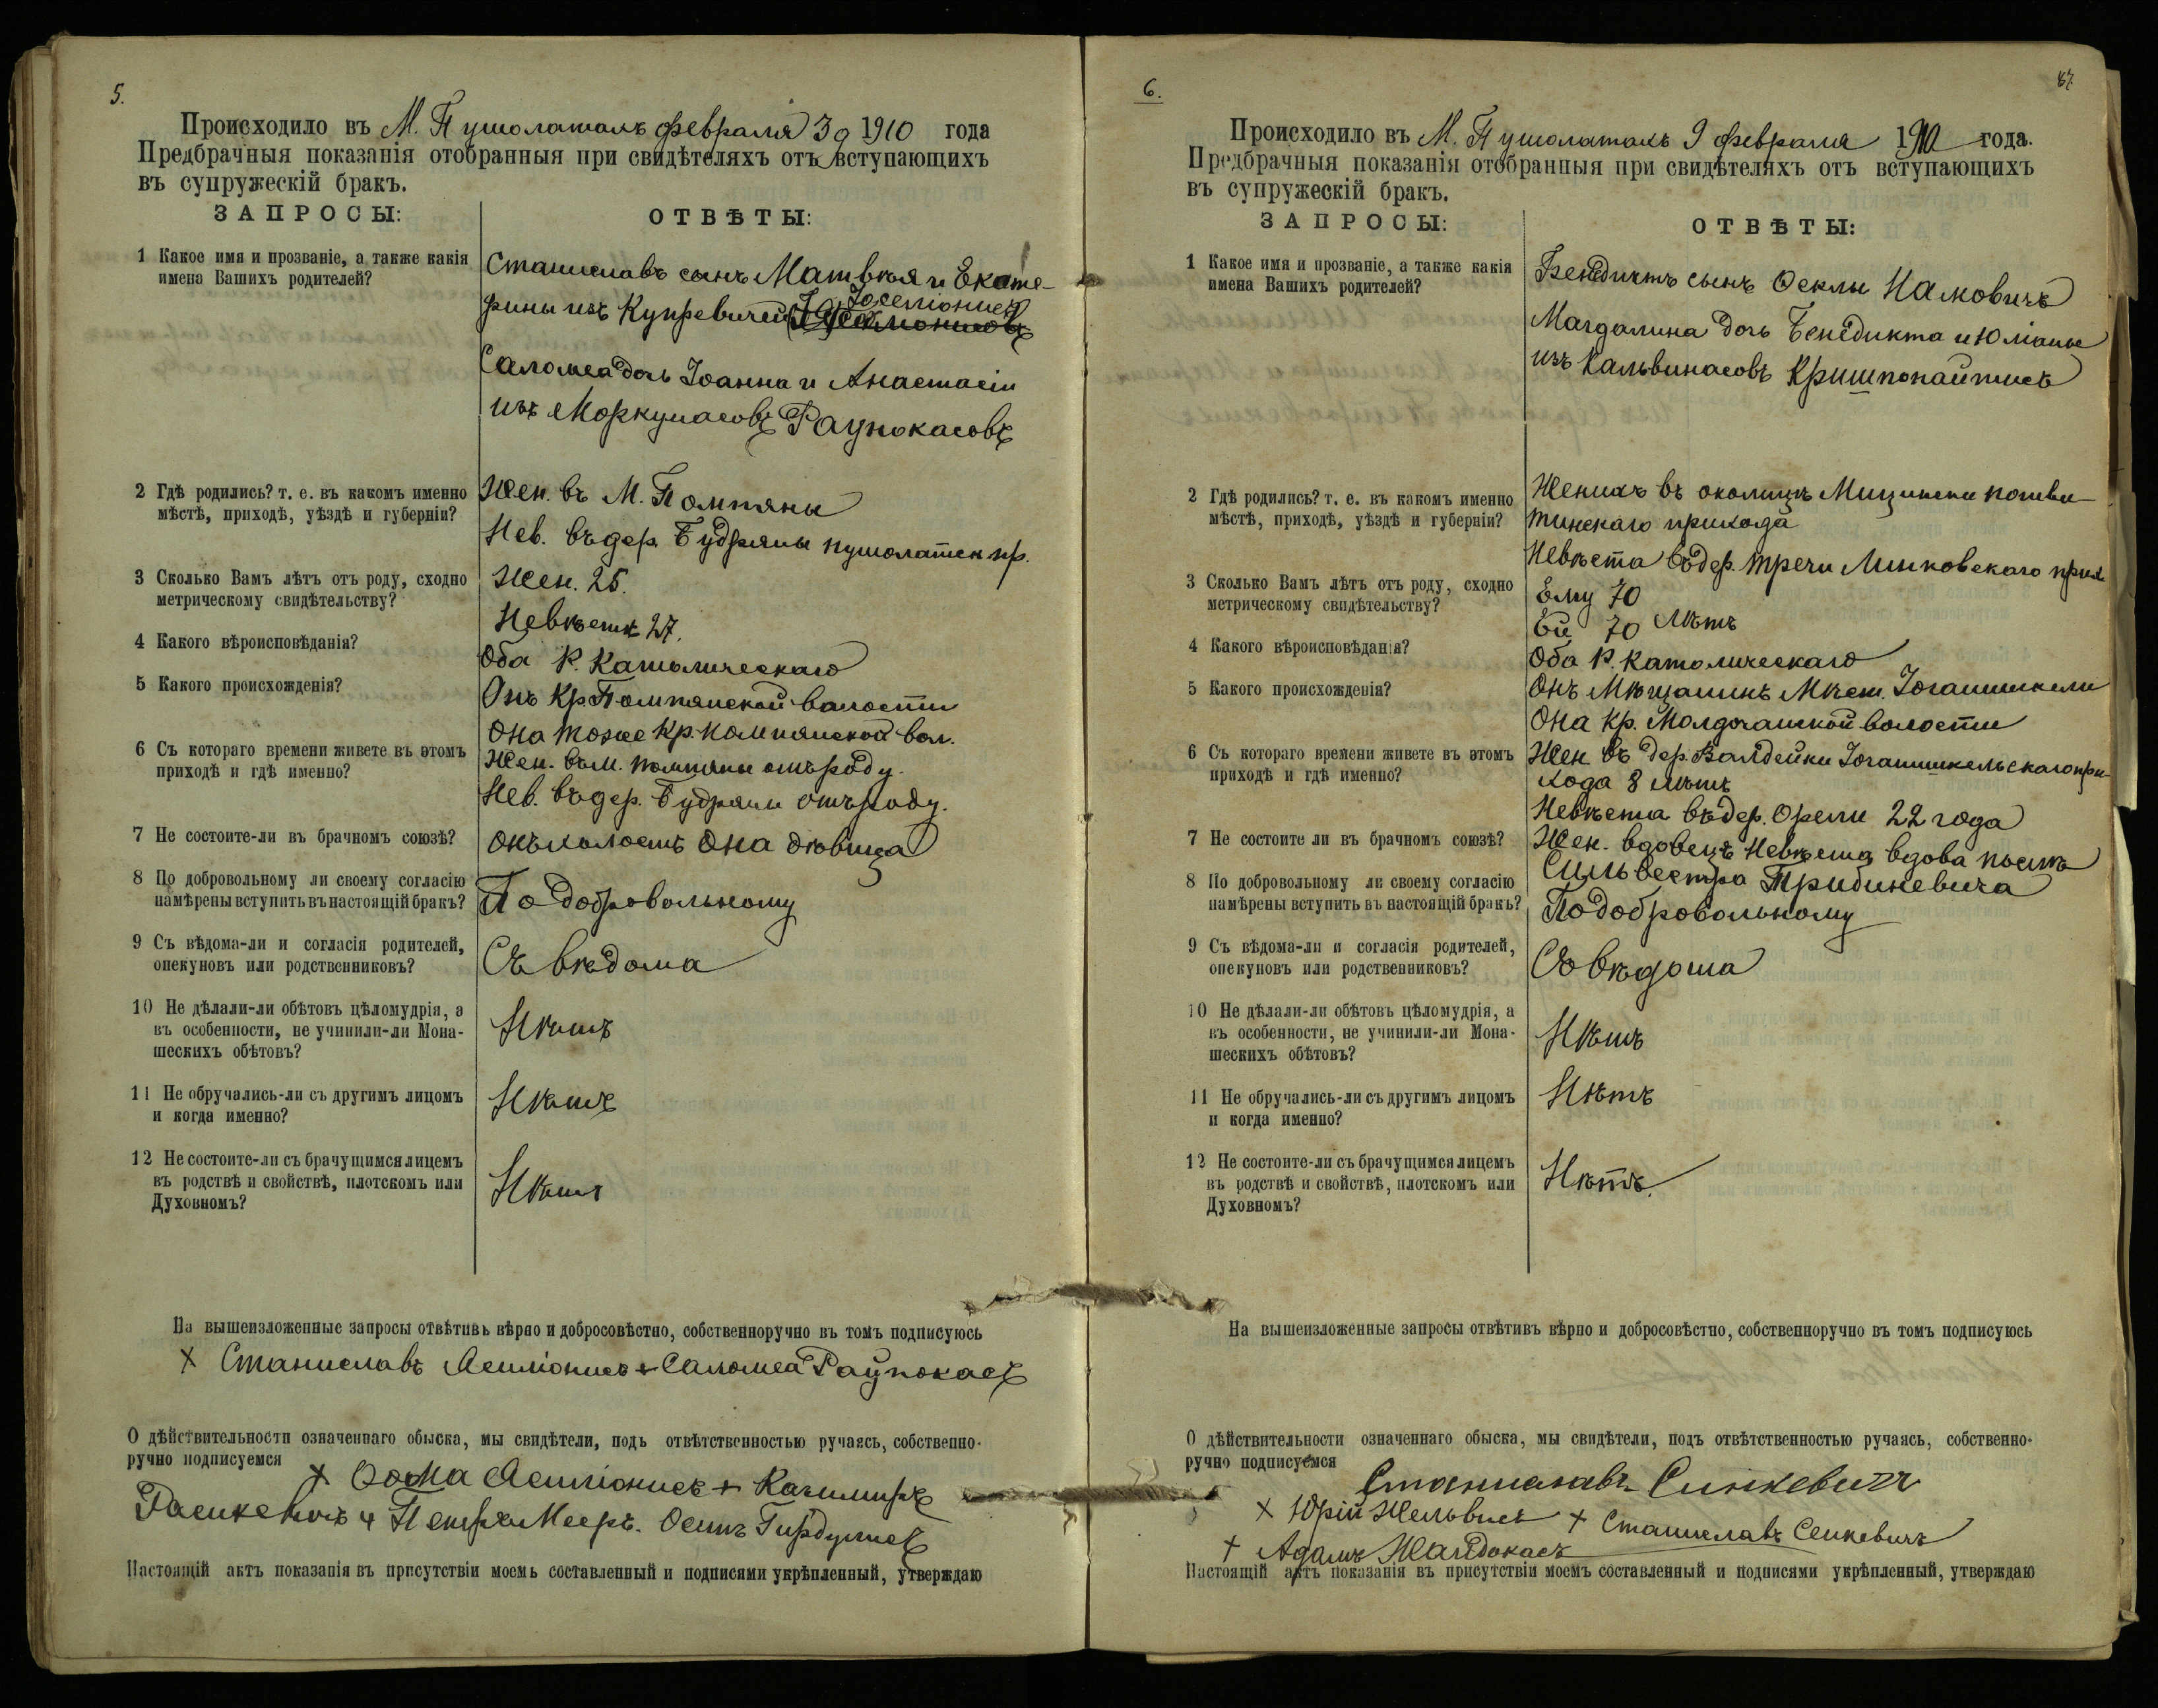 5.
Происходило въ М. Пушолатахъ февраля 3 д 1910 года
Предбрачныя показанія отобранныя при свидѣтеляхъ отъ вступающихъ
въ супружескій бракъ.
ЗАПРОСЫ:
ОТВѢТЫ:
1 Какое имя и прозваніе, а также какія
имена Вашихъ родителей?
Станиславъ сынъ Матвѣя и Екате-
рины изъ Купревичей
Саломеа дочь Іоанна и Анастасіи
изъ Моркунасовъ Раупокасовъ
2 Гдѣ родились? т. е. въ какомъ именно
мѣстѣ, приходѣ, уѣздѣ и губерніи?
Жен. въ М. Помпяны
Нев. въ дер. Будряны пушолатск пр.
3 Сколько Вамъ лѣтъ отъ роду, сходно
метрическому свидѣтельству?
Жен. 25.
Невѣстѣ 27.
4 Какого вѣроисповѣданія?
Оба Р. Католическаго
5 Какого происхожденія?
Онъ Кр. Помпянской волости
Она тоже Кр. помпянской вол.
6 Съ котораго времени живете въ этомъ
приходѣ и гдѣ именно?
Жен. въ м. помпяны отъ роду.
Нев. въ дер. Будряны отъ роду.
7 Не состоите-ли въ брачномъ союзѣ?
Онъ холостъ Она дѣвица
8 По добровольному ли своему согласію
намѣрены вступить въ настоящій бракъ?
По добровольному
9 Съ вѣдома-ли и согласія родителей,
опекуновъ или родственниковъ?
Съ вѣдома
10 Не дѣлали-ли обѣтовъ цѣломудрія, а
въ особенности, не учинили-ли Мона-
шескихъ обѣтовъ?
Нѣтъ
11 Не обручались-ли съ другимъ лицомъ
и когда именно?
Нѣтъ
12 Не состоите-ли съ брачущимся лицемъ
въ родствѣ и свойствѣ, плотскомъ или
Духовномъ?
Нѣтъ
На вышеизложенные запросы отвѣтивъ вѣрно и добросовѣстно, собственноручно въ томъ подписуюсь
+ Станиславъ Асмонисъ + Саломеа Раупокасъ
О дѣйствительности означеннаго обыска, мы свидѣтели, подъ отвѣтственностью ручаясь, собственно-
ручно подписуемся
+ Ѳома Асмонисъ + Казимиръ
Расикевичъ + Петръ Мееръ. Осипъ Гирдунисъ
Настоящій актъ показанія въ присутствіи моемъ составленный и подписями укрѣпленный, утверждаю
6.
87.
Происходило въ М. Пушолатахъ 9 февраля 1910 года.
Предбрачныя показанія отобранныя при свидѣтеляхъ отъ вступающихъ
въ супружескій бракъ.
ЗАПРОСЫ:
ОТВѢТЫ:
1 Какое имя и прозваніе, а также какія
имена Вашихъ родителей?
Бенедиктъ сынъ Ѳеклы Намовичъ
Магдалина дочь Бенедикта и Юліаны
изъ Кальвинасовъ Кришпонайтисъ
2 Гдѣ родились? т. е. въ какомъ именно
мѣстѣ, приходѣ, уѣздѣ и губерніи?
Женихъ въ околицѣ Мицишки пошви-
тинскаго прихода
Невѣста въ дер. Тречи Линковскаго прих
3 Сколько Вамъ лѣтъ отъ роду, сходно
метрическому свидѣтельству?
Ему 70
Ей 70 лѣтъ
4 Какого вѣроисповѣданія?
Оба Р. Католическаго
5 Какого происхожденія?
Онъ Мѣщанинъ Мѣст. Іоганишкели
Она Кр. Молдочанской волости
6 Съ котораго времени живете въ этомъ
приходѣ и гдѣ именно?
Жен. въ дер. Валдейки Іоганишкельскаго при-
хода 8 лѣтъ
Невѣста въ дер. Орели 22 года
7 Не состоите ли въ брачномъ союзѣ?
Жен. вдовецъ Невѣста вдова послѣ
Сильвестра Трибиневича
8 По добровольному ли своему согласію
намѣрены вступить въ настоящій бракъ?
По добровольному
9 Съ вѣдома-ли и согласія родителей,
опекуновъ или родственниковъ?
Съ вѣдома
10 Не дѣлали-ли обѣтовъ цѣломудрія, а
въ особенности, не учинили-ли Мона-
шескихъ обѣтовъ?
Нѣтъ
11 Не обручались-ли съ другимъ лицомъ
и когда именно?
Нѣтъ
12 Не состоите-ли съ брачущимся лицемъ
въ родствѣ и свойствѣ, плотскомъ или
Духовномъ?
Нѣтъ.
На вышеизложенные запросы отвѣтивъ вѣрно и добросовѣстно, собственноручно въ томъ подписуюсь
О дѣйствительности означеннаго обыска, мы свидѣтели, подъ отвѣтственностью ручаясь, собственно-
ручно подписуемся
Станиславъ Синкевичъ
+ Юрій Желвисъ + Станиславъ Сенкевичъ
+ Адамъ Жандокасъ
Настоящій актъ показанія въ присутствіи моемъ составленный и подписями укрѣпленный, утверждаю